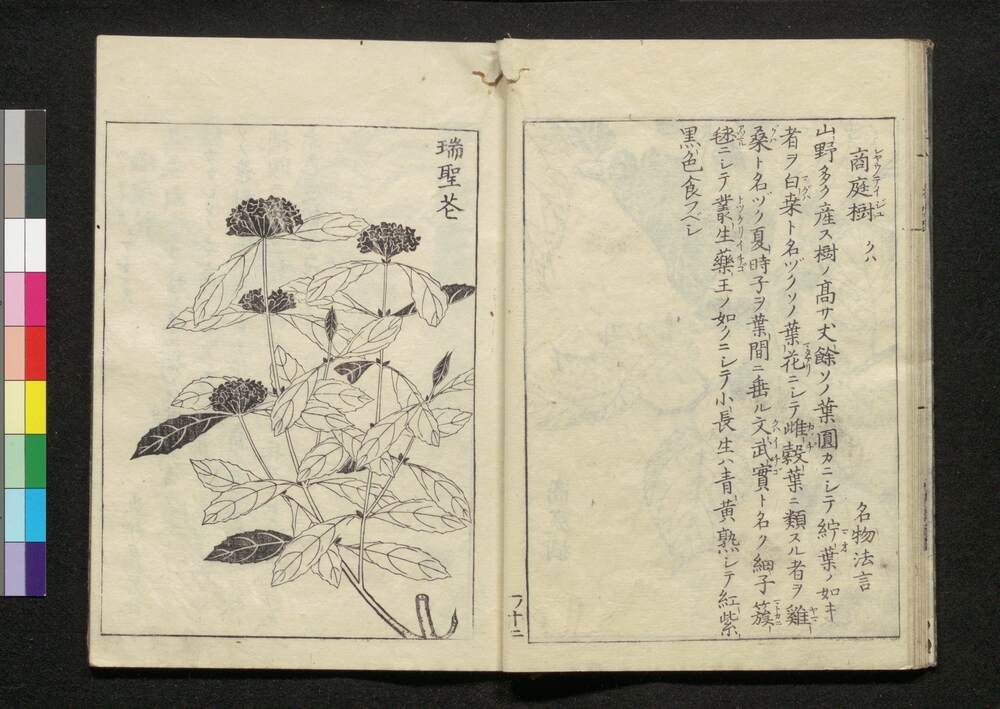 商庭樹 クハ 名物法言
シヤウテイジユ
山野多ク産ス樹ノ髙サ丈餘ソノ葉圓カニシテ紵葉ノ如キ
者ヲ白桒ト名ヅクソノ葉花ニシテ雌穀葉ニ類スル者ヲ雞
桑ト名ヅク夏時子ヲ葉間ニ垂ル文武實ト名ク細子簇
毬ニシテ叢生蘽王ノ如クニシテ小長生ハ青黄熟シテ紅紫
黒色食フベシ
瑞聖花
フ十二